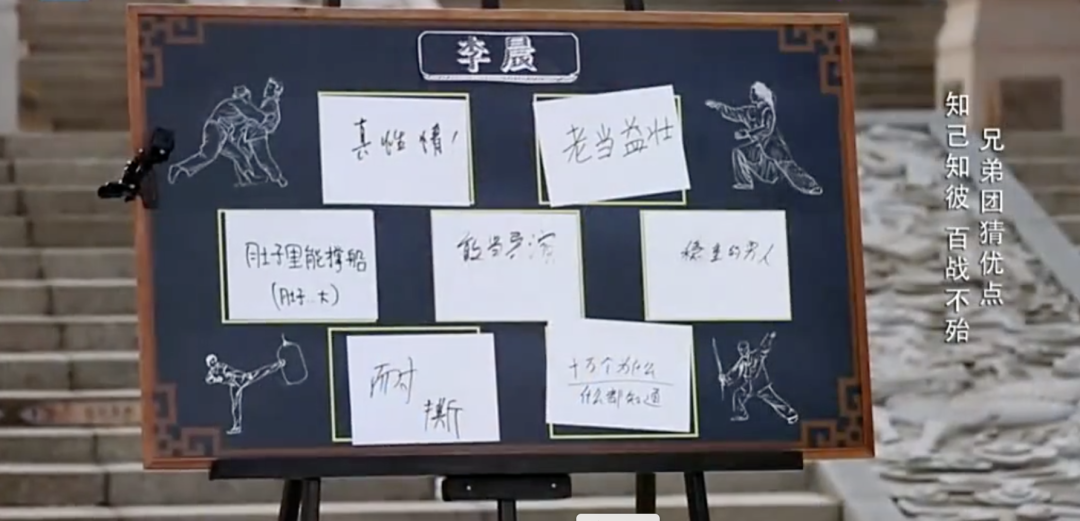 李晨
真性情！
老当益壮
肚子里能撑船
(肚子…大)
能当导演
稳重的男人
耐
撕
十万个为什么
什么都知道
兄弟团猜优点
知己知彼 百战不殆